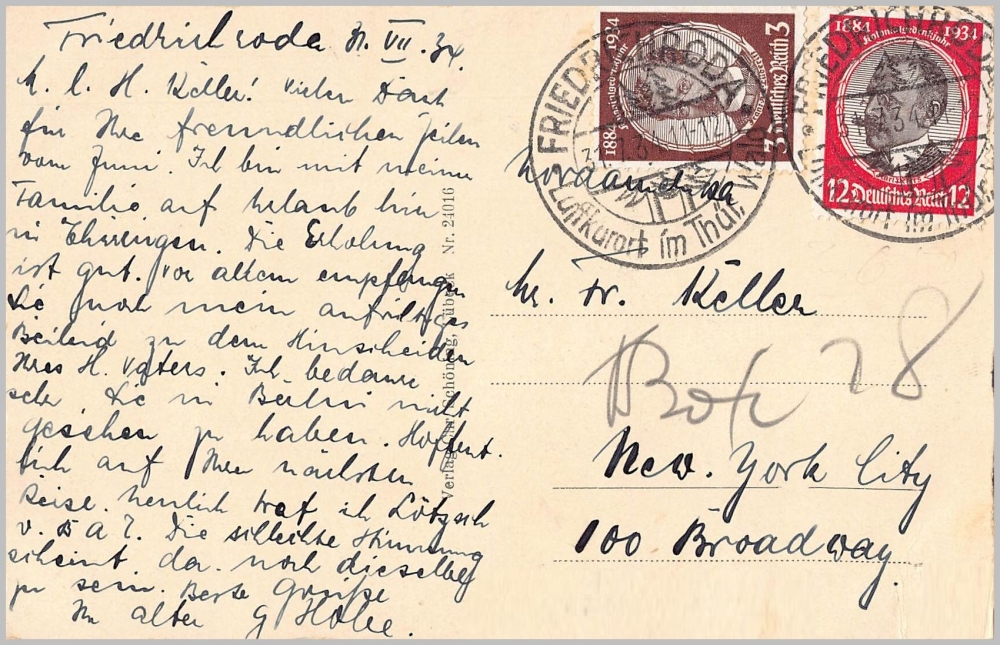 Friedrichroda 31. VII. 34.
M. l. H. Keller! Vielen Dank
für Ihre freundlichen Zeilen
vom Juni. Ich bin mit meiner
Familie auf Urlaub hier
in Thüringen. Die Erholung
ist gut. Vor allem empfangen
Sie noch mein aufrichtiges
Beileid zu dem Hinscheiden
Ihres H. Vaters. Ich bedaure
sehr, Sie in Berlin nicht
gesehen zu haben. Hoffent-
lich auf Ihrer nächsten
Reise. Neulich traf ich
v. Die Stimmung
scheint da noch dieselbe
zu sein. Beste Grüße
Ihr alter G
Verlag Carl Schöning, Lübeck Nr. 24016
1884 1934
Kolonialgedenkjahr
3 Deutsches Reich 3
1884 1934
Kolonialgedenkjahr
12 Deutsches Reich 12
FRIEDRICHRODA
11-12
Luftkurort im Thür.
FRIEDRICHRODA
Luftkurort im Thür.
Nordamerika
Mr. Fr. Keller
Box 28
New York City
100 Broadway.